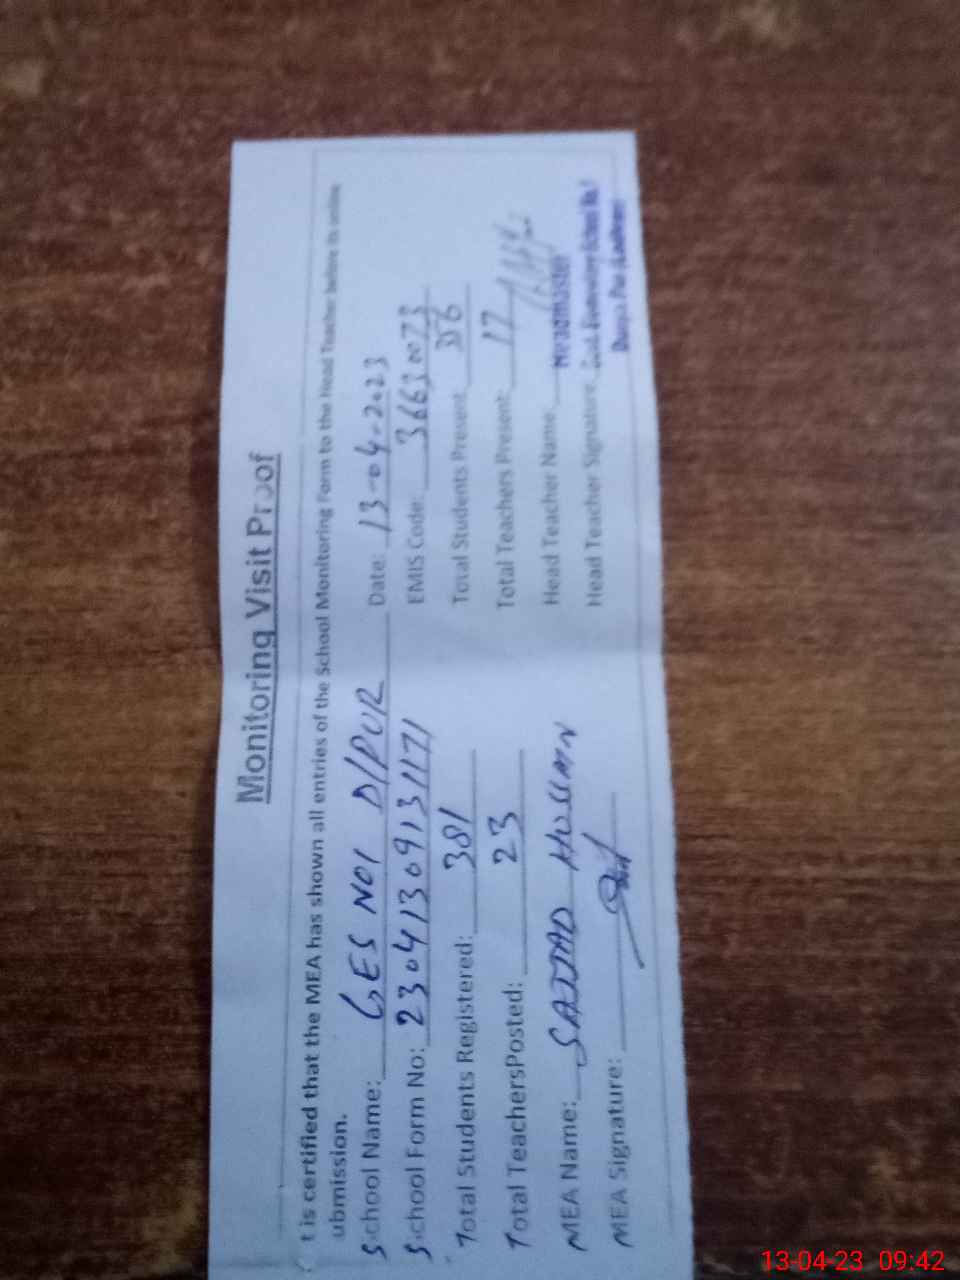 Monitoring Visit Proof
t is certified that the MEA has shown all entries of the School Monitoring Form to the Head Teacher before its online
ubmission.
School Name: GES NO1 D/PUR Date: 13-04-2023
School Form No: 23041309131171 EMIS Code: 36630073
Total Students Registered: 381 Total Students Present
Total TeachersPosted: 23 Total Teachers Present: 17
MEA Name: SAJJAD HUSSAIN Head Teacher Name: Headmaster
MEA Signature: Head Teacher Signature Govt. Elementary School No.1
13-04-23 09:42